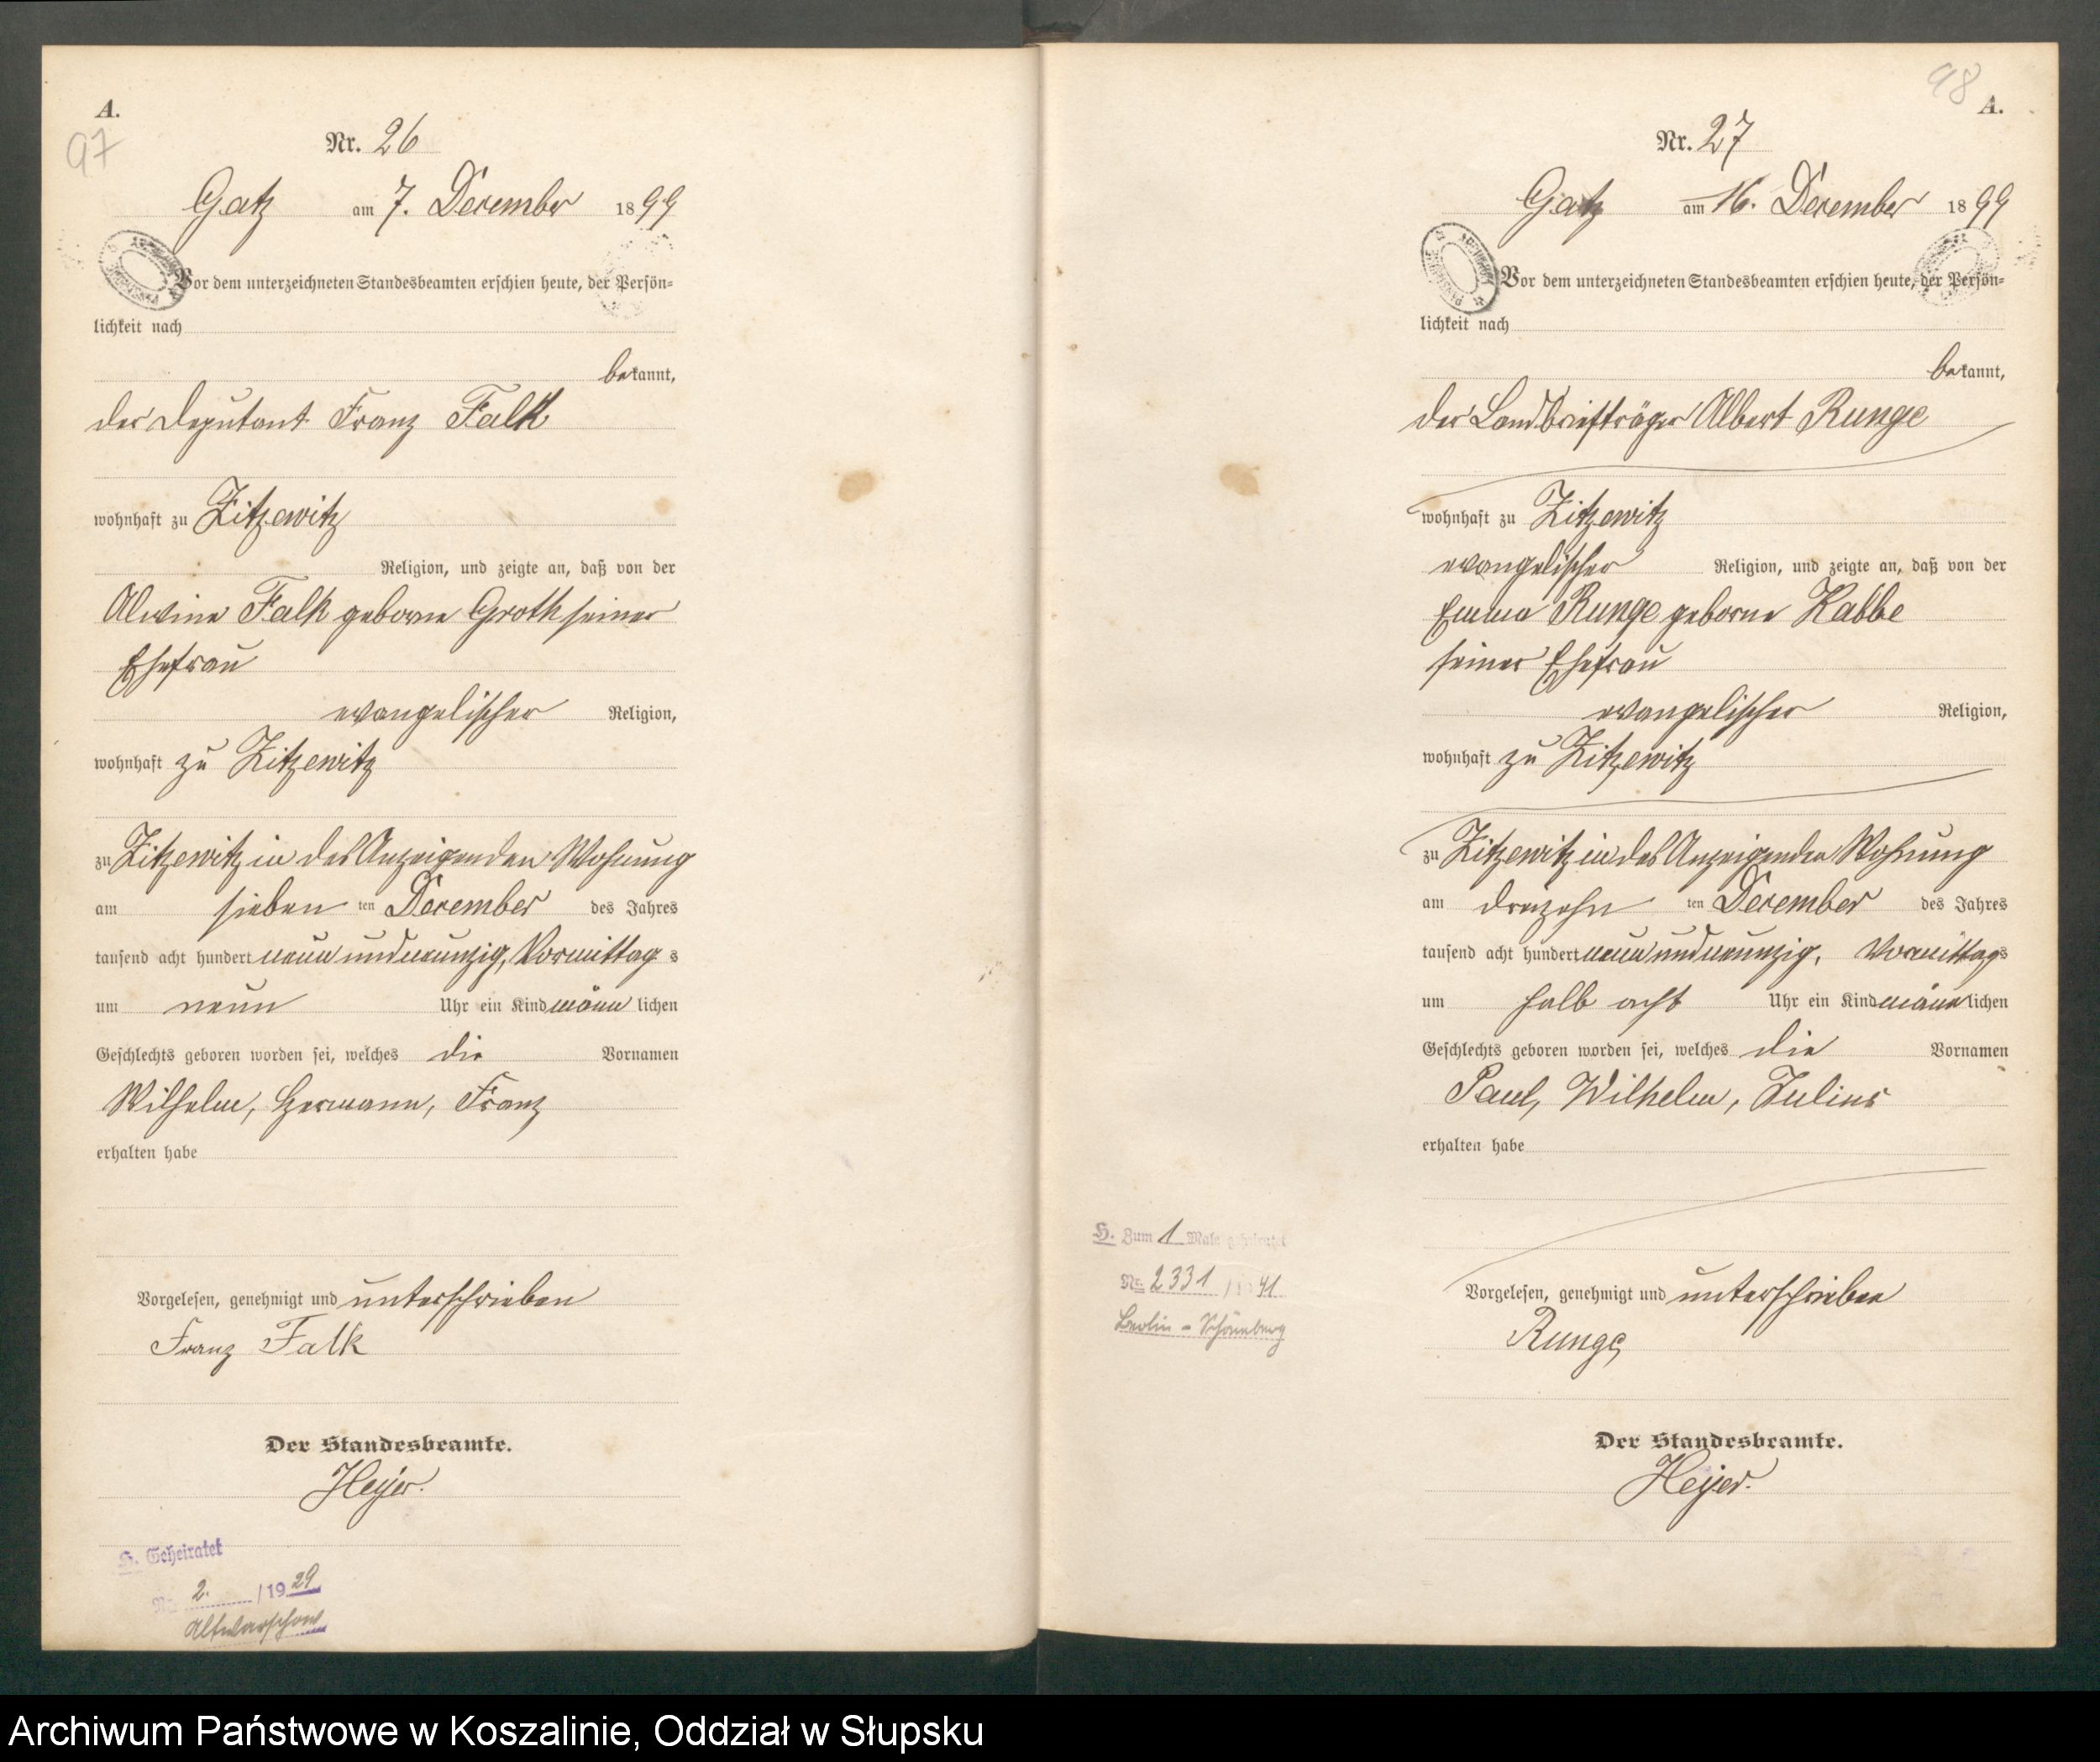 A.
97
Nr. 26
Gatz am 7. December 1899
Vor dem unterzeichneten Standesbeamten erschien heute, der Persön-
lichkeit nach
bekannt,
der Deputant Franz Falk
wohnhaft zu Zitzewitz
Religion, und zeigte an, daß von der
Alwine Falk geborne Groth seiner
Ehefrau
evangelischer Religion,
wohnhaft zu Zitzewitz
zu Zitzewitz in des Anzeigenden Wohnung
am sieben ten December des Jahres
tausend acht hundert neun und neunzig, Vormittag s
um neun Uhr ein Kind männ lichen
Geschlechts geboren worden sei, welches die Vornamen
Wilhelm, Hermann, Franz
erhalten habe
Vorgelesen, genehmigt und unterschrieben
Franz Falk
Der Standesbeamte.
Heyer.
H. Geheiratet
Nr. 2. /1929
Altwarschow
98
A.
Nr. 27
Gatz am 16. December 1899
Vor dem unterzeichneten Standesbeamten erschien heute, der Persön-
lichkeit nach
bekannt,
der Landbriefträger Albert Runge
wohnhaft zu Zitzewitz
evangelischer Religion, und zeigte an, daß von der
Emma Runge geborne Kabbe
seiner Ehefrau
evangelischer Religion,
wohnhaft zu Zitzewitz
zu Zitzewitz in des Anzeigenden Wohnung
am dreizehn ten December des Jahres
tausend acht hundert neun und neunzig, Vormittags
um halb acht Uhr ein Kind männ lichen
Geschlechts geboren worden sei, welches die Vornamen
Paul, Wilhelm, Julius
erhalten habe
H. Zum 1 Male geheiratet
Nr. 2331 / 41
Berlin - Schöneberg
Vorgelesen, genehmigt und unterschrieben
Runge
Der Standesbeamte.
Heyer.
Archiwum Państwowe w Koszalinie, Oddział w Słupsku